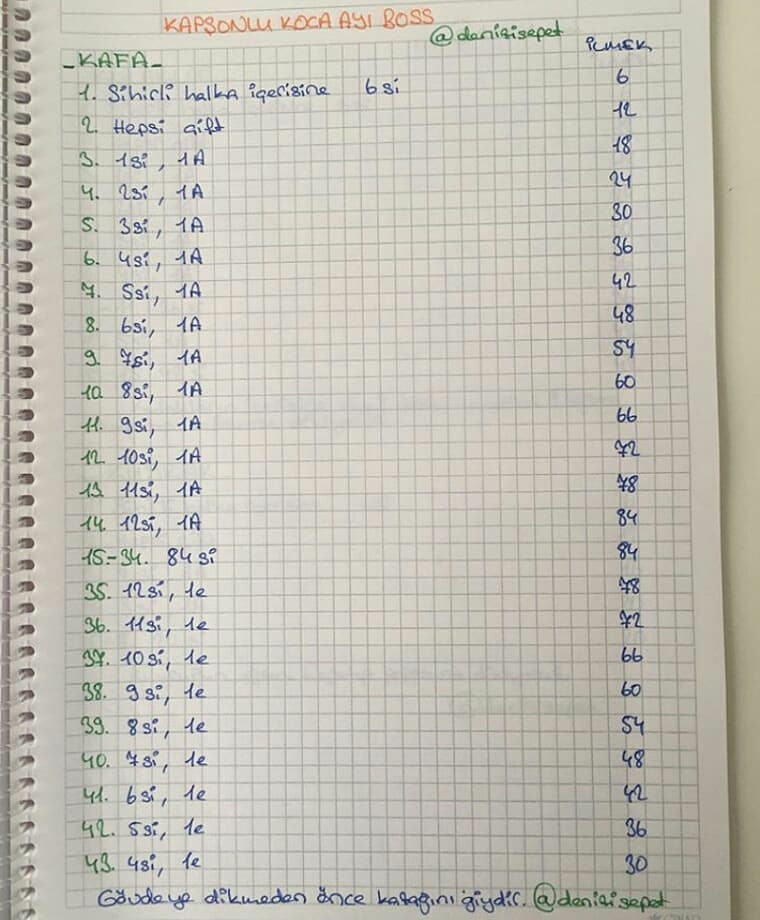 KAPŞONLU KOCA AYI BOSS
@denizisepet
_KAFA_ İLMEK
1. Sihirli halka içerisine 6si 6
2. Hepsi çift 12
3. 1si, 1A 18
4. 2si, 1A 24
5. 3si, 1A 30
6. 4si, 1A 36
7. 5si, 1A 42
8. 6si, 1A 48
9. 7si, 1A 54
10. 8si, 1A 60
11. 9si, 1A 66
12. 10si, 1A 72
13. 11si, 1A 78
14. 12si, 1A 84
15-34. 84si 84
35. 12si, 1e 78
36. 11si, 1e 72
37. 10si, 1e 66
38. 9si, 1e 60
39. 8si, 1e 54
40. 7si, 1e 48
41. 6si, 1e 42
42. 5si, 1e 36
43. 4si, 1e 30
Gövdeye dikmeden önce kazağını giydir. @denizisepet